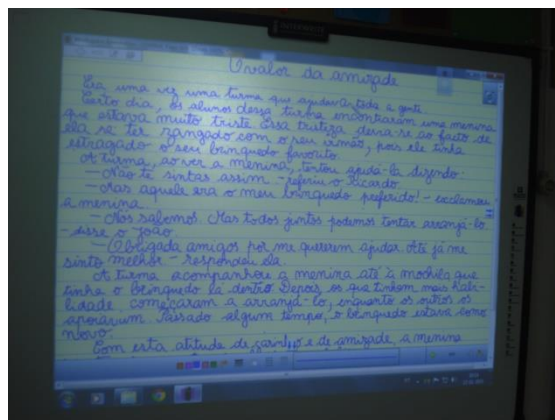 O valor da amizade
Era uma vez uma turma que ajudava toda a gente.
Certo dia, os alunos dessa turma encontraram uma menina
que estava muito triste. Essa tristeza devia-se ao facto de
ela se ter zangado com o seu irmão, pois ele tinha
estragado o seu brinquedo favorito.
A turma, ao ver a menina, tentou ajudá-la dizendo:
— Não te sintas assim - referiu o Ricardo.
— Mas aquele era o meu brinquedo preferido! - exclamou
a menina.
— Nós sabemos. Mas todos juntos podemos tentar arranjá-lo.
- disse o João.
— Obrigada amigos por me quererem ajudar. Até já me
sinto melhor - respondeu ela.
A turma acompanhou a menina até à mochila que
tinha o brinquedo lá dentro. Depois, os que tinham mais habi-
lidade começaram a arranjá-lo, enquanto os outros os
apoiavam. Passado algum tempo, o brinquedo estava como
novo.
Com esta atitude de carinho e de amizade, a menina